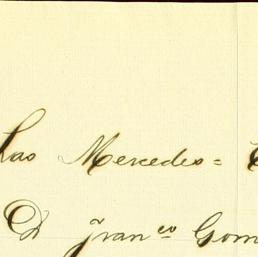 Las Mercedes=
D Fran.co Gom